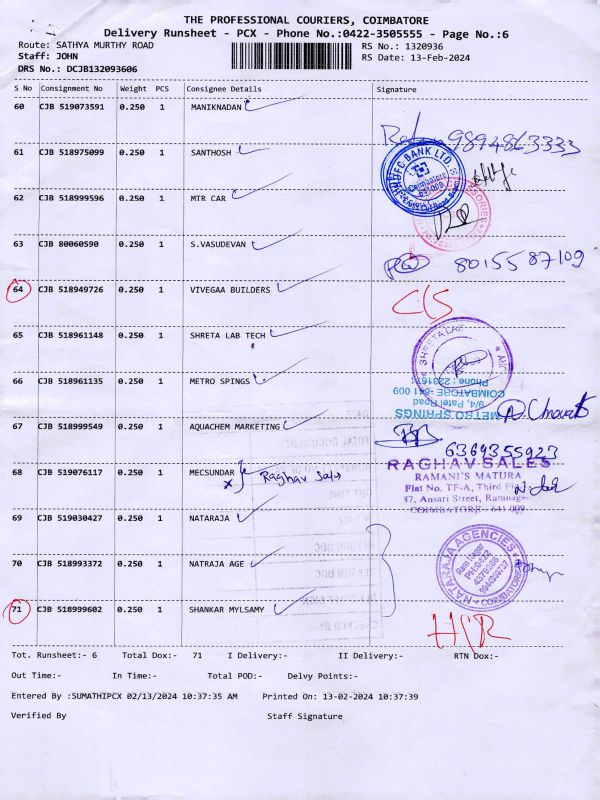 THE PROFESSIONAL COURIERS, COIMBATORE
Delivery Runsheet - PCX - Phone No.:0422-3505555 - Page No.:6
Route: SATHYA MURTHY ROAD
RS No.: 1320936
Staff: JOHN
RS Date: 13-Feb-2024
DRS No.: DCJB132093606
S No Consignment No Weight PCS Consignee Details Signature
60 CJB 519073591 0.250 1 MANIKNADAN
9894863333
61 CJB 518975099 0.250 1 SANTHOSH
HDFC BANK LTD.
Coimbatore
62 CJB 518999596 0.250 1 MTR CAR
63 CJB 80060590 0.250 1 S.VASUDEVAN
8015587109
64 CJB 518949726 0.250 1 VIVEGAA BUILDERS
C/S
65 CJB 518961148 0.250 1 SHRETA LAB TECH
SHREETA LAB
66 CJB 518961135 0.250 1 METRO SPINGS
METRO SPRINGS
9/4, Patel Road
COIMBATORE - 641 009
Phone : 2231671
67 CJB 518999549 0.250 1 AQUACHEM MARKETING
6369355923
68 CJB 519076117 0.250 1 MECSUNDAR
x Raghav Sales
RAGHAV SALES
RAMANI'S MATURA
Flat No. TF-A, Third
87, Ansari Street, Ramnagar
COIMBATORE - 641 009
69 CJB 519030427 0.250 1 NATARAJA
70 CJB 518993372 0.250 1 NATRAJA AGE
NATARAJA AGENCIES
Ram Nagar
PH:0422
COIMBATORE
71 CJB 518999602 0.250 1 SHANKAR MYLSAMY
Tot. Runsheet:- 6 Total Dox:- 71 I Delivery:- II Delivery:- RTN Dox:-
Out Time:- In Time:- Total POD:- Delvy Points:-
Entered By :SUMATHIPCX 02/13/2024 10:37:35 AM Printed On: 13-02-2024 10:37:39
Verified By Staff Signature